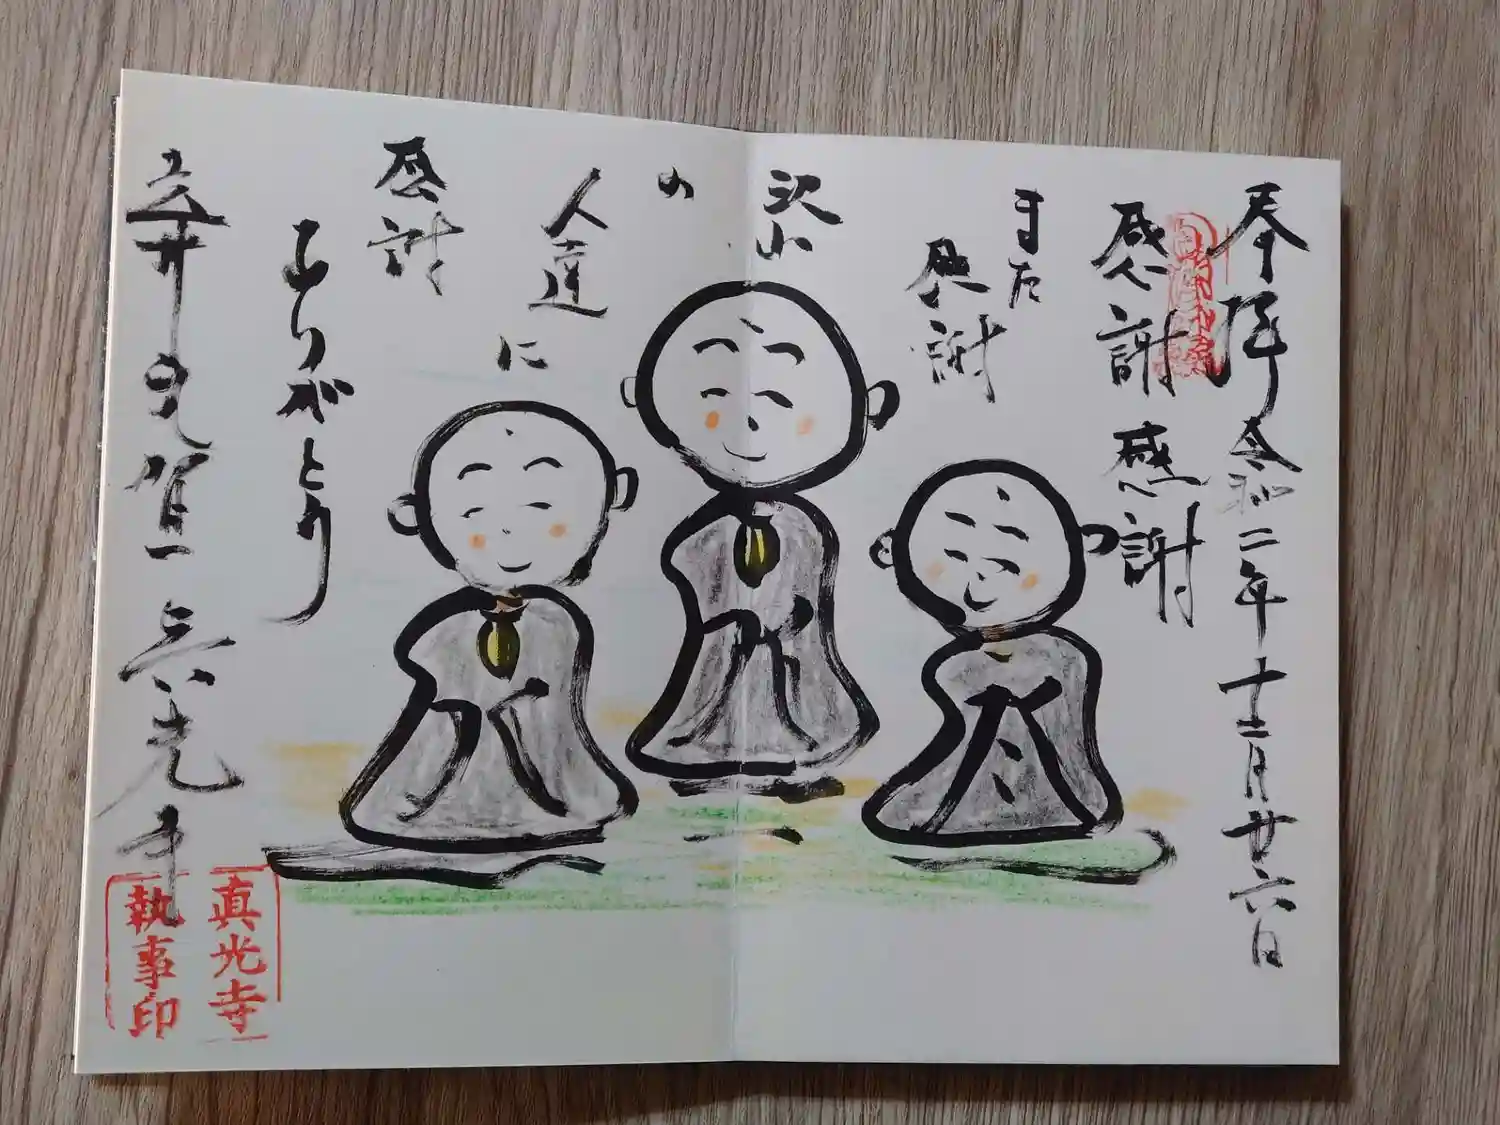 奉拝 令和二年十二月廿六日
感謝 感謝
また
感謝
沢山
の
人達
に
感謝
ありがとう
真光寺
真光寺
執事印